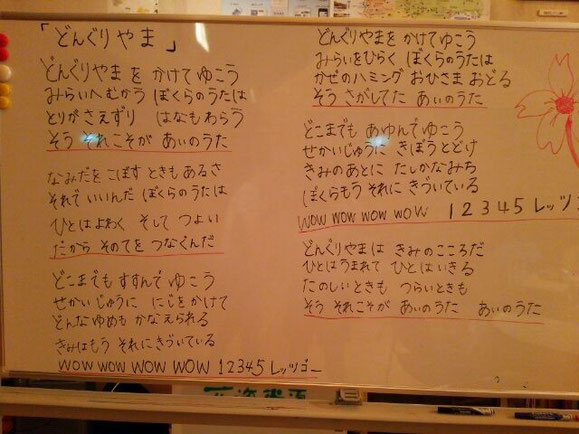 「どんぐりやま」
どんぐりやまを かけてゆこう
みらいへむかう ぼくらのうたは
とりがさえずり はなもわらう
そう それこそが あいのうた
なみだを こぼす ときも あるさ
それで いいんだ ぼくらのうたは
ひとはよわく そして つよい
だから そのてを つなぐんだ
どこまでも すすんで ゆこう
せかいじゅうに にじをかけて
どんなゆめも かなえられる
きみはもう それに きづいている
WOW WOW WOW WOW 12345 レッツゴー
どんぐりやまを かけてゆこう
みらいをひらく ぼくらのうたは
かぜのハミング おひさま おどる
そう さがしてた あいのうた
どこまでも あゆんで ゆこう
せかいじゅうに きぼうとどけ
きみのあとに たしかなみち
ぼくらもう それに きづいている
WOW WOW WOW WOW 12345 レッツ
どんぐりやまは きみのこころだ
ひとはうまれて ひとはいきる
たのしいときも つらいときも
そう それこそが あいのうた あいのうた